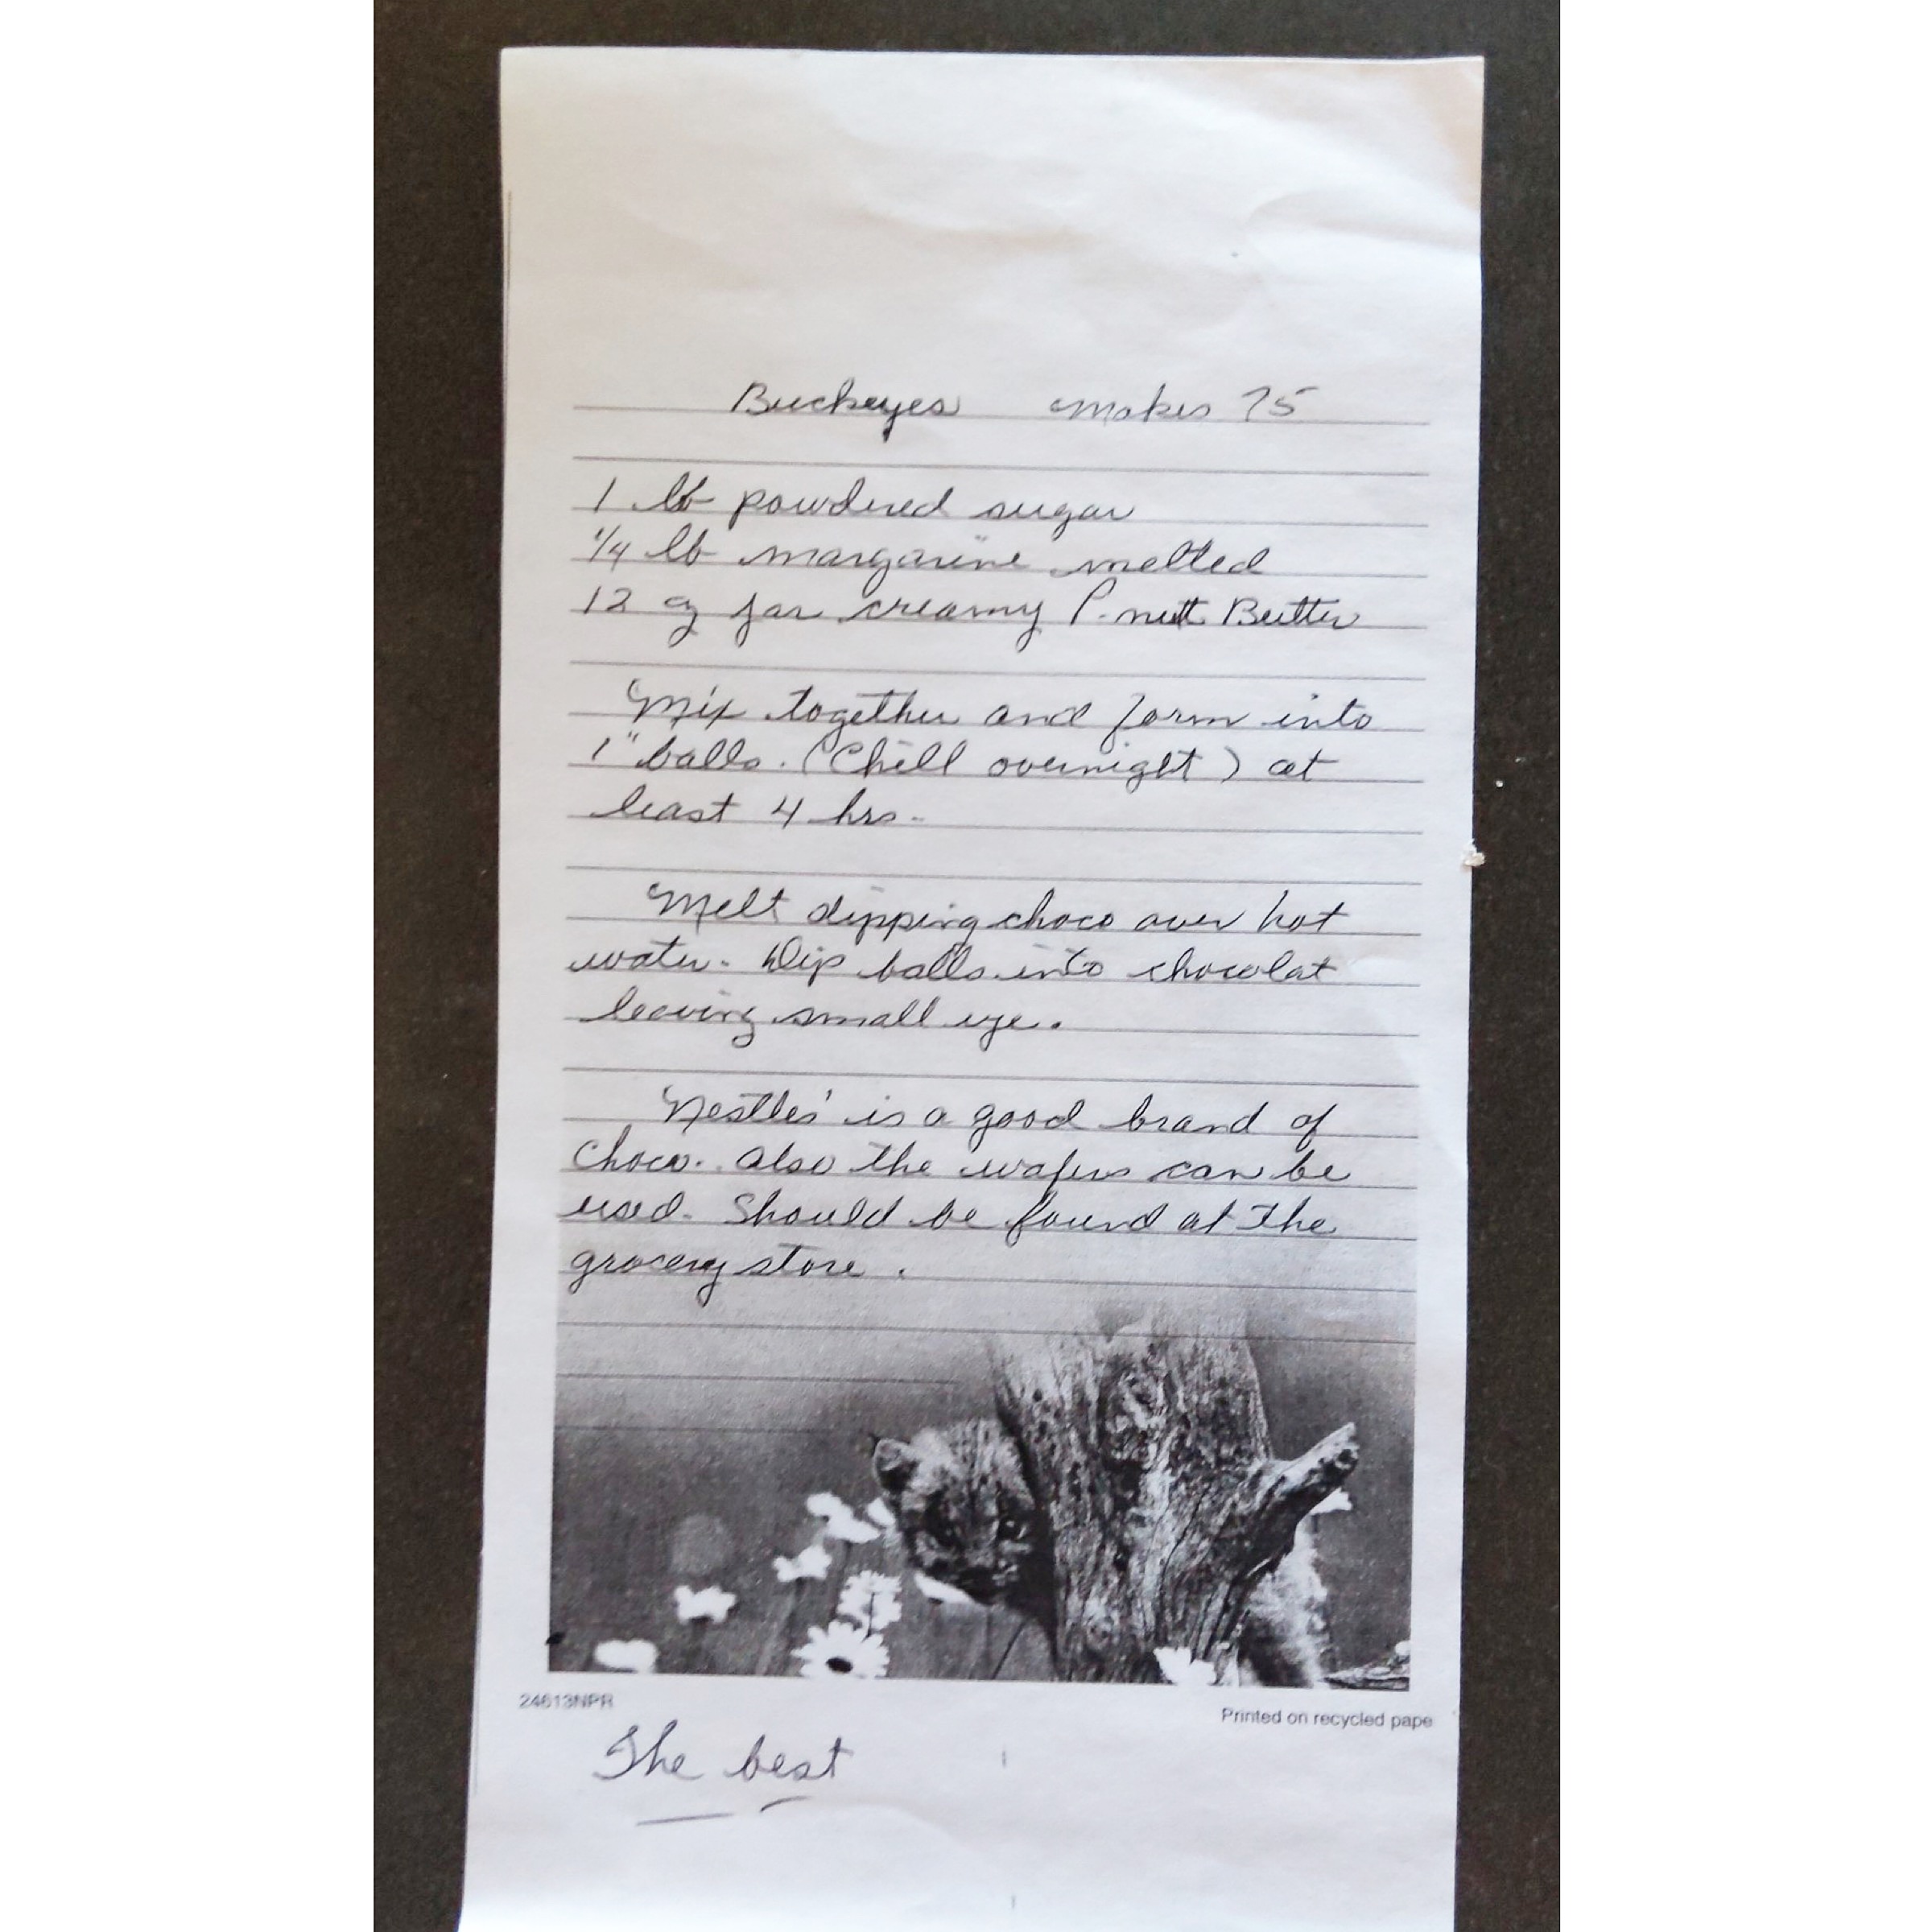 Buckeyes makes 75
1 lb powdered sugar
1/4 lb margarine melted
12 oz jar creamy P-nutt Butter
Mix together and form into
1" balls. (Chill overnight) at
least 4 hrs.
Melt dipping choco over hot
water. Dip balls into chocolat
leaving small eye.
Nestles' is a good brand of
choco. also the wafers can be
used. Should be found at the
grocery store.
24613NPR
Printed on recycled pape
The best